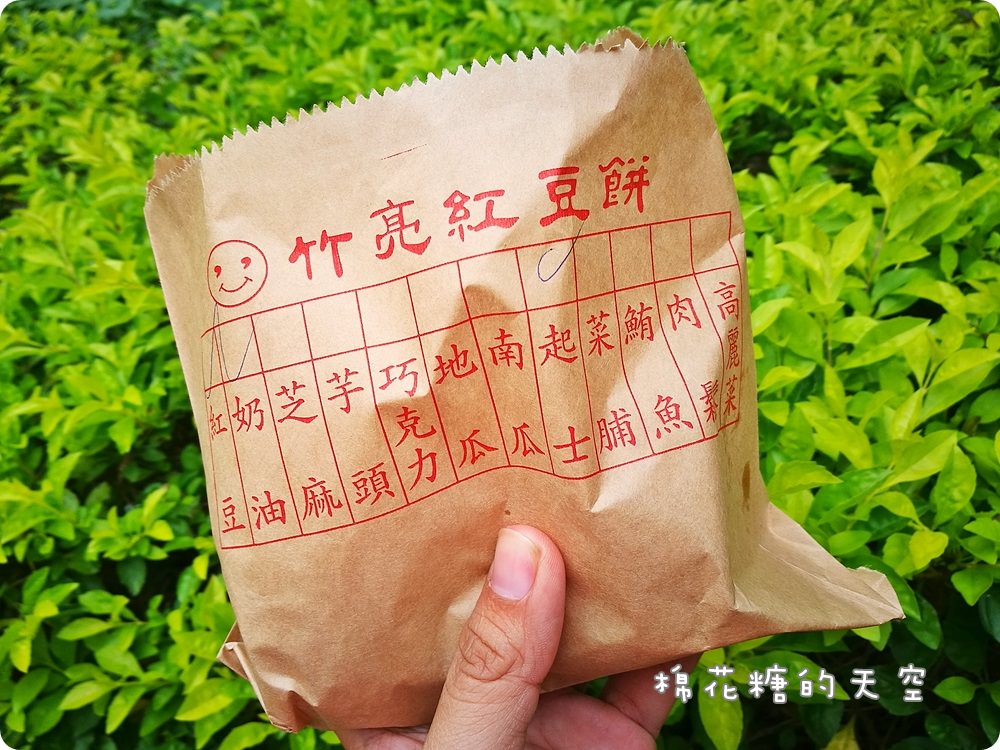 竹亮紅豆餅
紅豆
奶油
芝麻
芋頭
巧克力
地瓜
南瓜
起士
菜脯
鮪魚
肉鬆
高麗菜
棉花糖的天空